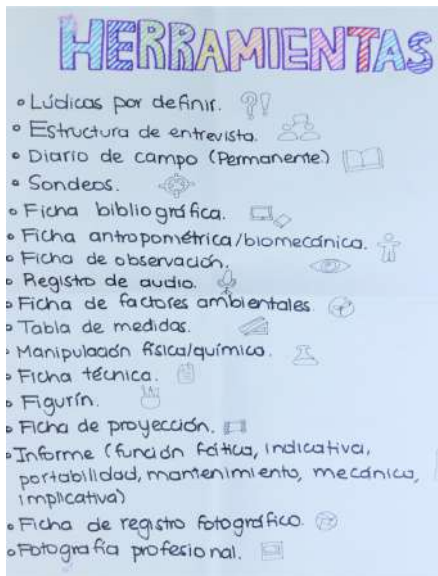 HERRAMIENTAS
• Lúdicas por definir.
• Estructura de entrevista.
• Diario de campo (Permanente)
• Sondeos.
• Ficha bibliográfica.
• Ficha antropométrica/biomecánica.
• Ficha de observación.
• Registro de audio.
• Ficha de factores ambientales.
• Tabla de medidas.
• Manipulación física/químico.
• Ficha técnica.
• Figurín.
• Ficha de proyección.
• Informe (función fática, indicativa,
portabilidad, mantenimiento, mecánica,
implicativa)
• Ficha de registro fotográfico.
• Fotografía profesional.